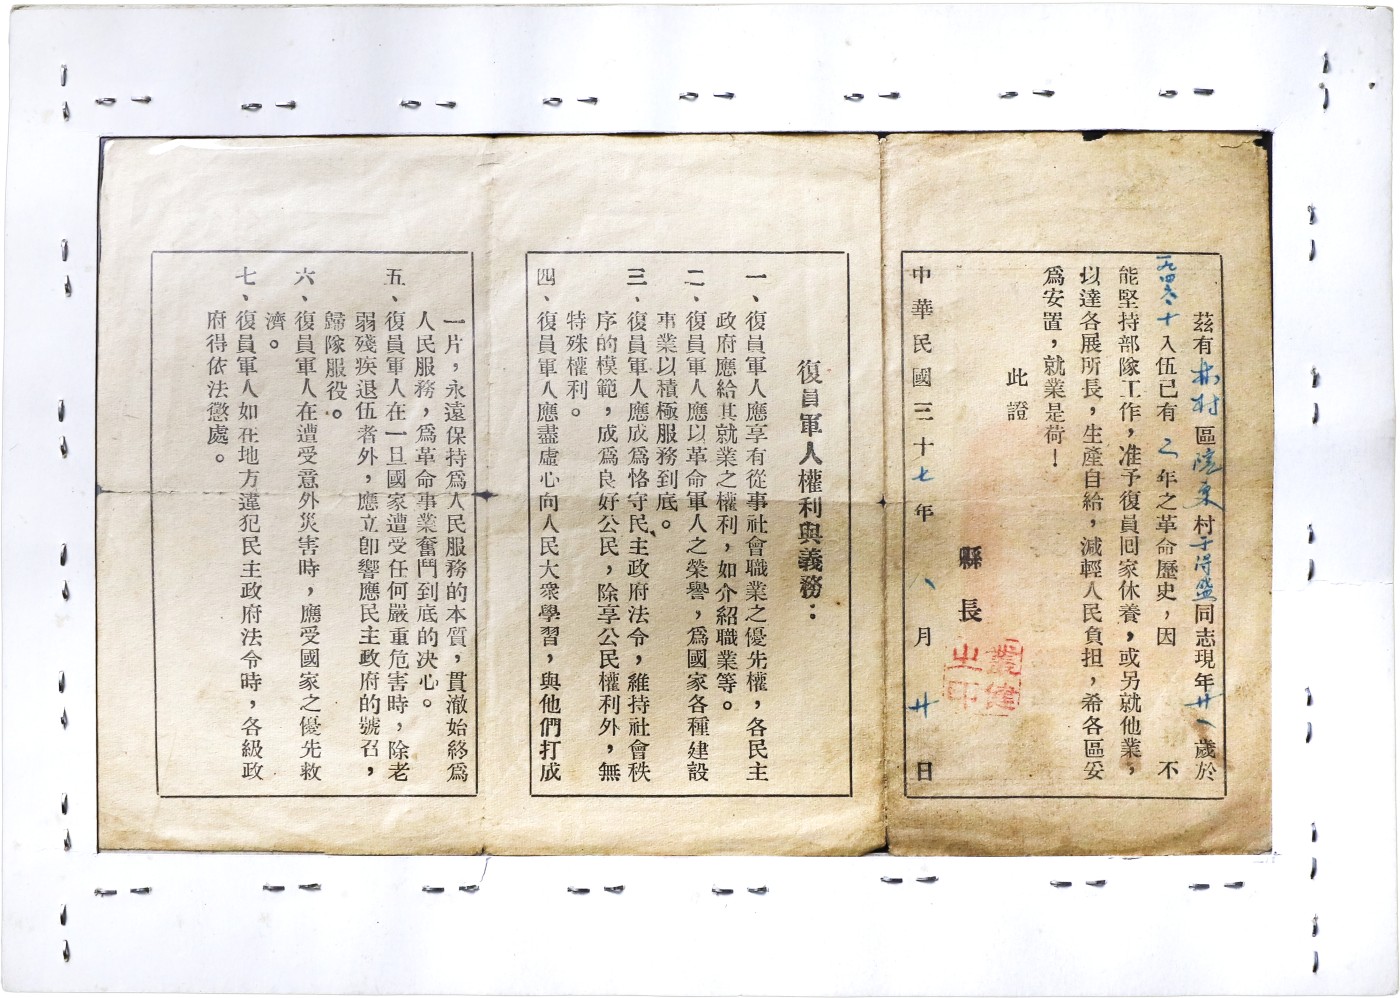 茲有林村區院東村于得盛同志現年廿一歲於
一九四六、十入伍已有二年之革命歷史，因　不
能堅持部隊工作，准予復員回家休養，或另就他業，
以達各展所長，生產自給，減輕人民負担，希各區妥
爲安置，就業是荷！
此證
縣長
叢健之印
中華民國三十七年八月廿日
復員軍人權利與義務：
一、復員軍人應享有從事社會職業之優先權，各民主
政府應給其就業之權利，如介紹職業等。
二、復員軍人應以革命軍人之榮譽，爲國家各種建設
事業以積極服務到底。
三、復員軍人應成爲恪守民主政府法令，維持社會秩
序的模範，成爲良好公民，除享公民權利外，無
特殊權利。
四、復員軍人應盡虛心向人民大衆學習，與他們打成
一片，永遠保持爲人民服務的本質，貫澈始終爲
人民服務，爲革命事業奮鬥到底的決心。
五、復員軍人在一旦國家遭受任何嚴重危害時，除老
弱殘疾退伍者外，應立卽響應民主政府的號召，
歸隊服役。
六、復員軍人在遭受意外災害時，應受國家之優先救
濟。
七、復員軍人如在地方違犯民主政府法令時，各級政
府得依法懲處。